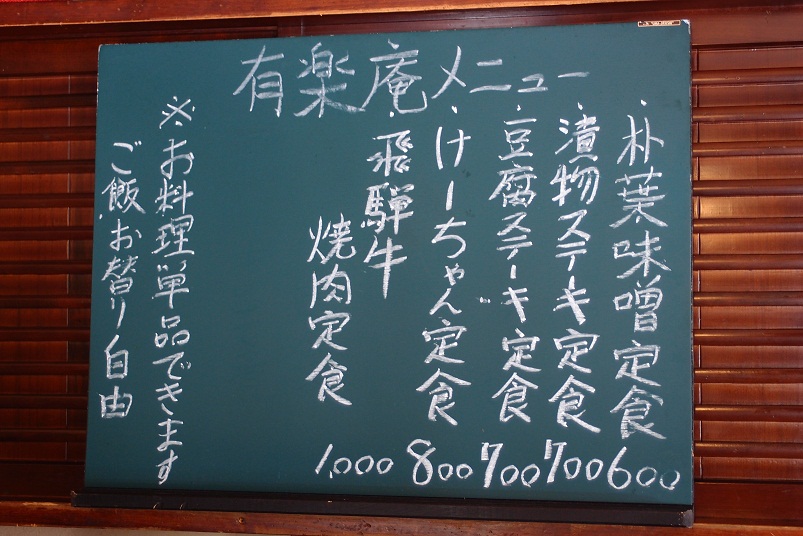 有楽庵メニュー
・朴葉味噌定食 600
・漬物ステーキ定食 700
・豆腐ステーキ定食 700
・けーちゃん定食 800
・飛騨牛
焼肉定食 1,000
※お料理単品できます
ご飯お替り自由